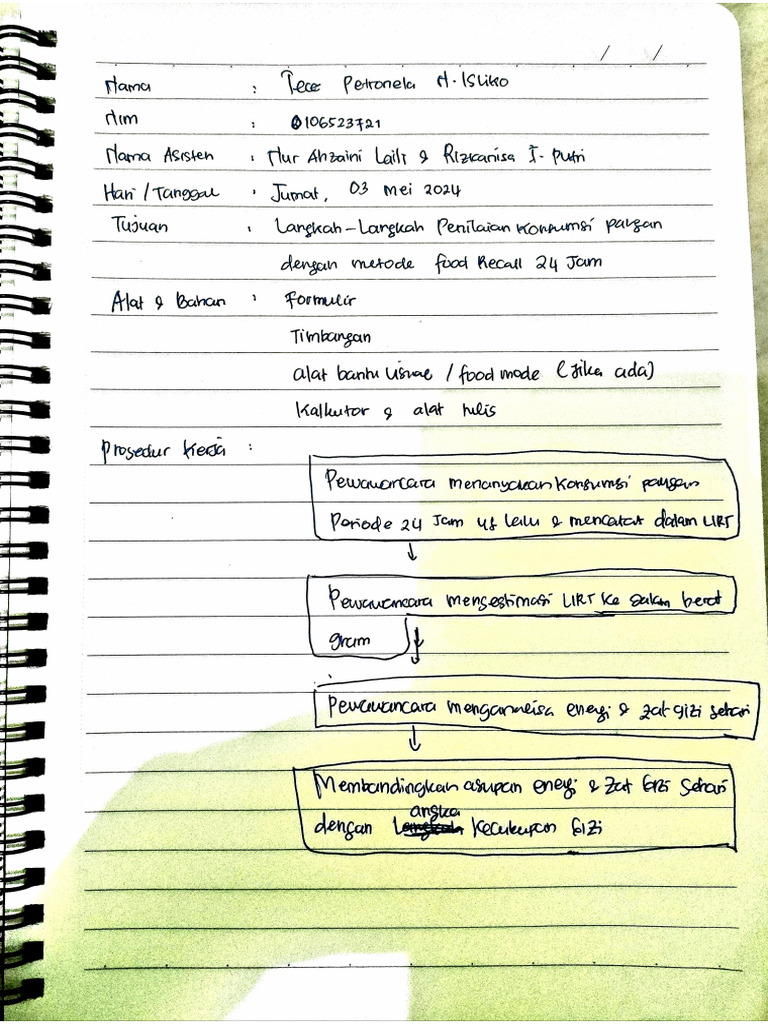 / /
Nama : Tece Petronela N. Isliko
Nim : 0106523721
Nama Asisten : Nur Ahzaini Laili & Rizkanisa I. Putri
Hari / Tanggal : Jumat, 03 Mei 2024
Tujuan : Langkah-Langkah Penilaian Konsumsi pangan
dengan metode food Recall 24 Jam
Alat & Bahan : Formulir
Timbangan
alat bantu visual / food mode (jika ada)
Kalkutor & alat tulis
Prosedur Kerja :
Pewawancara menanyakan konsumsi pangan
Periode 24 Jam yg lalu & mencatat dalam URT
↓
Pewawancara mengestimasi URT ke dalam berat
gram ↓
Pewawancara menganalisa energi & zat gizi sehari
↓
Membandingkan asupan energi & zat Gizi sehari
dengan angka Kecukupan Gizi